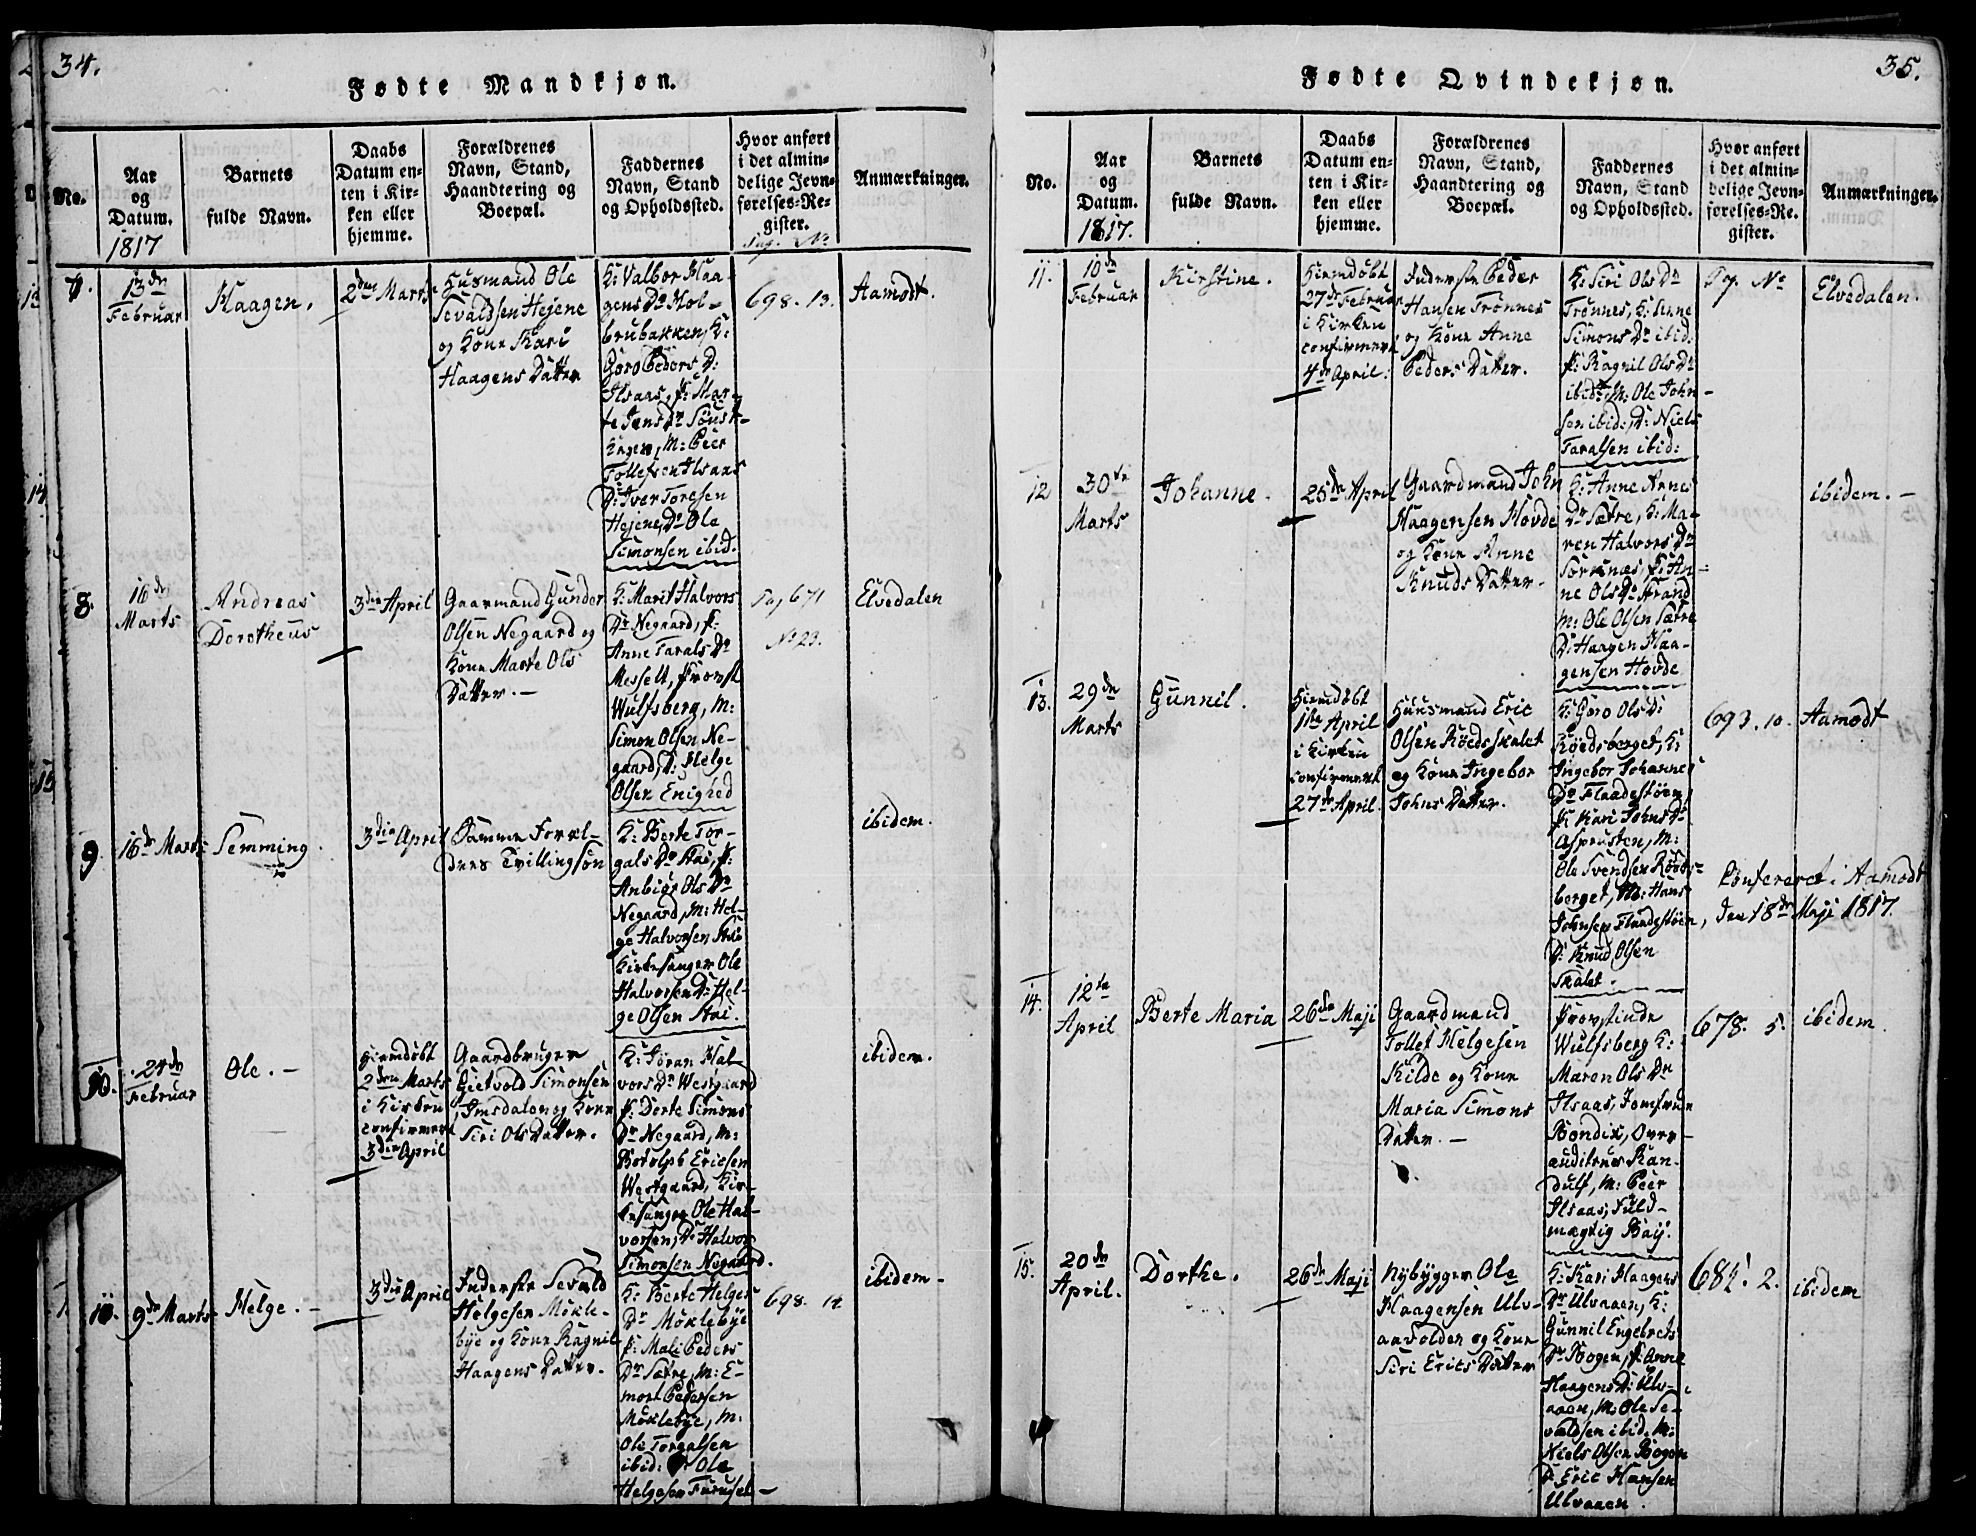 34.
Fødte Mandkjøn.
No.
Aar
og
Datum.
1817
Barnets
fulde Navn.
Daabs
Datum en-
ten i Kir-
ken eller
hjemme.
Forældrenes
Navn, Stand,
Haandtering og
Boepæl.
Faddernes
Navn, Stand
og Opholdssted.
Hvor anført
i det almin-
delige Jevn-
førelses-Re-
gister.
Pag. No
Anmærkninger.
7.
13de
Februar
Haagen.
2den Marts
Husmand Ole
Sevaldsen Hejene
og Kone Kari
Haagens Datter
K: Valbor Haa-
gens Dr Mol-
brubakken, K:
Goro Peders D:
Ilsaas, P: Mar-
te Jens Dr
M: Peer
Tollefsen Ilsaas
D: Iver Toresen
Hejene, Do Ole
Simonsen ibid.
698. 13.
Aamodt.
8.
16de
Marts
Andreas
Dorotheus
3die April
Gaarmand Gunder
Olsen Negaard og
Kone Marte Ols
Datter. —
K: Marit Halvors
Dr Negaard, P:
Anne Tarals Dr
Messelt, Provst
Wulfsberg, M:
Simon Olsen Ne-
gaard, D: Helge
Olsen Enighed
Pag 671
No 23.
Elvedalen
9.
16de Marts
Semming.
3die April
Samme Foræl-
dres Tvillingsøn
K: Berte Tor-
gals Dr Stai, P:
Anbiør Ols Dr
Negaard, M: Hel-
ge Halvorsen Stai
Kirkesanger Ole
Halvorsen D: Hel-
ge Olsen Stai.
ibidem.
10.
24de
Februar
Ole. —
Hiemdøbt
2den Marts
i Kirken
confirmert
3die April
Gaardbruger
Gietvold Simonsen
Imsdalen og Kone
Siri Ols Datter.
K: Jøran Hal-
vors Dr Westgaard
P: Dorte Simons
Dr Negaard, M:
Botolph Ericsen
Westgaard, Kir-
kesanger Ole Hal-
vorsen, D: Halvor
Simonsen Negaard.
ibidem.
11.
9de Marts
Helge. —
3die April
Inderste Sevald
Helgesen Møkle-
bye og Kone Ragnil
Haagens Datter.
K: Berte Helges
Dr Møklebye
P: Mali Peders
Dr Sætre, M: E-
mort Pedersen
Møklebye, M:
Ole Torgalsen
ibid: D: Ole
Helgesen Furuset —
698. 14.
ibidem —
35.
Fødte Qvindekjøn.
No.
Aar
og
Datum.
1817.
Barnets
fulde Navn.
Daabs
Datum en-
ten i Kir-
ken eller
hjemme.
Forældrenes
Navn, Stand,
Haandtering og
Boepæl.
Faddernes
Navn, Stand
og Opholdssted.
Hvor anført
i det almin-
delige Jevn-
førelses-Re-
gister.
Anmærkninger.
11.
10de
Februar
Kirstine.
Hiemdøbt
27de Februar
i Kirken
confirmert
4de April.
Inderste Peder
Hansen Trønnes
og Kone Anne
Peders Datter.
K: Siri Ols Dr
Trønnes, K: Anne
Simons Dr ibid.
P: Ragnil Ols Dr
ibid: M: Ole John-
sen ibid:, D: Niels
Taralsen ibid:
Pag. No
Elvedalen.
12
30te
Marts
Johanne.
25de April
Gaardmand John
Haagensen Hovde
og Kone Anne
Knuds Datter.
K: Anne Arnes
Dr Sætre, K: Ma-
ren Halvors Dr
Sørnæs, P: An-
ne Ols Dr Strand
M: Ole Olsen Sætre
D: Haagen Haa-
gensen Hovde
ibidem. —
13.
29de
Marts
Gunnil.
Hiemdøbt
11te April
i Kirken
confirmert
27de April.
Huusmand Eric
Olsen Røedsskalet
og Kone Ingebor
Johns Datter.
K: Goro Ols D:
Røedsberget, K:
Ingebor Johannes
Dr Flaadestøen,
P: Kari Johns Dr
Asprusten, M:
Ole Svendsen Røeds-
berget, M: Hans
Johnsen Flaadestøen,
D: Knud Olsen
Skalet.
693. 10.
Aamodt
Confereret i Aamodt
den 18de Maji 1817.
14.
12te
April
Berte Maria
26de Maji
Gaardmand
Tollef Helgesen
Kilde og Kone
Maria Simons
Datter. —
Provstinde
Wulfsberg K:
Maren Ols Dr
Ilsaas, Jomfrue
Bendix, Over-
auditeur Ran-
dulf, M: Peer
Ilsaas, Fuld-
mægtig Baij.
678. 5.
ibidem.
15.
20de
April.
Dorthe.
26de Maji
Nybygger Ole
Haagensen Ulv-
aavolden og Kone
Siri Erics Datter
K: Kari Haagens
Dr Ulvaaen, K:
Gunnil Engebrets
Dr Bogen, P: Anne
Haagens D: Ulv-
aaen, M: Ole Se-
valdsen ibid. M:
Niels Olsen Bogen
D: Eric Hansen
Ulvaaen.
681. 2.
ibidem